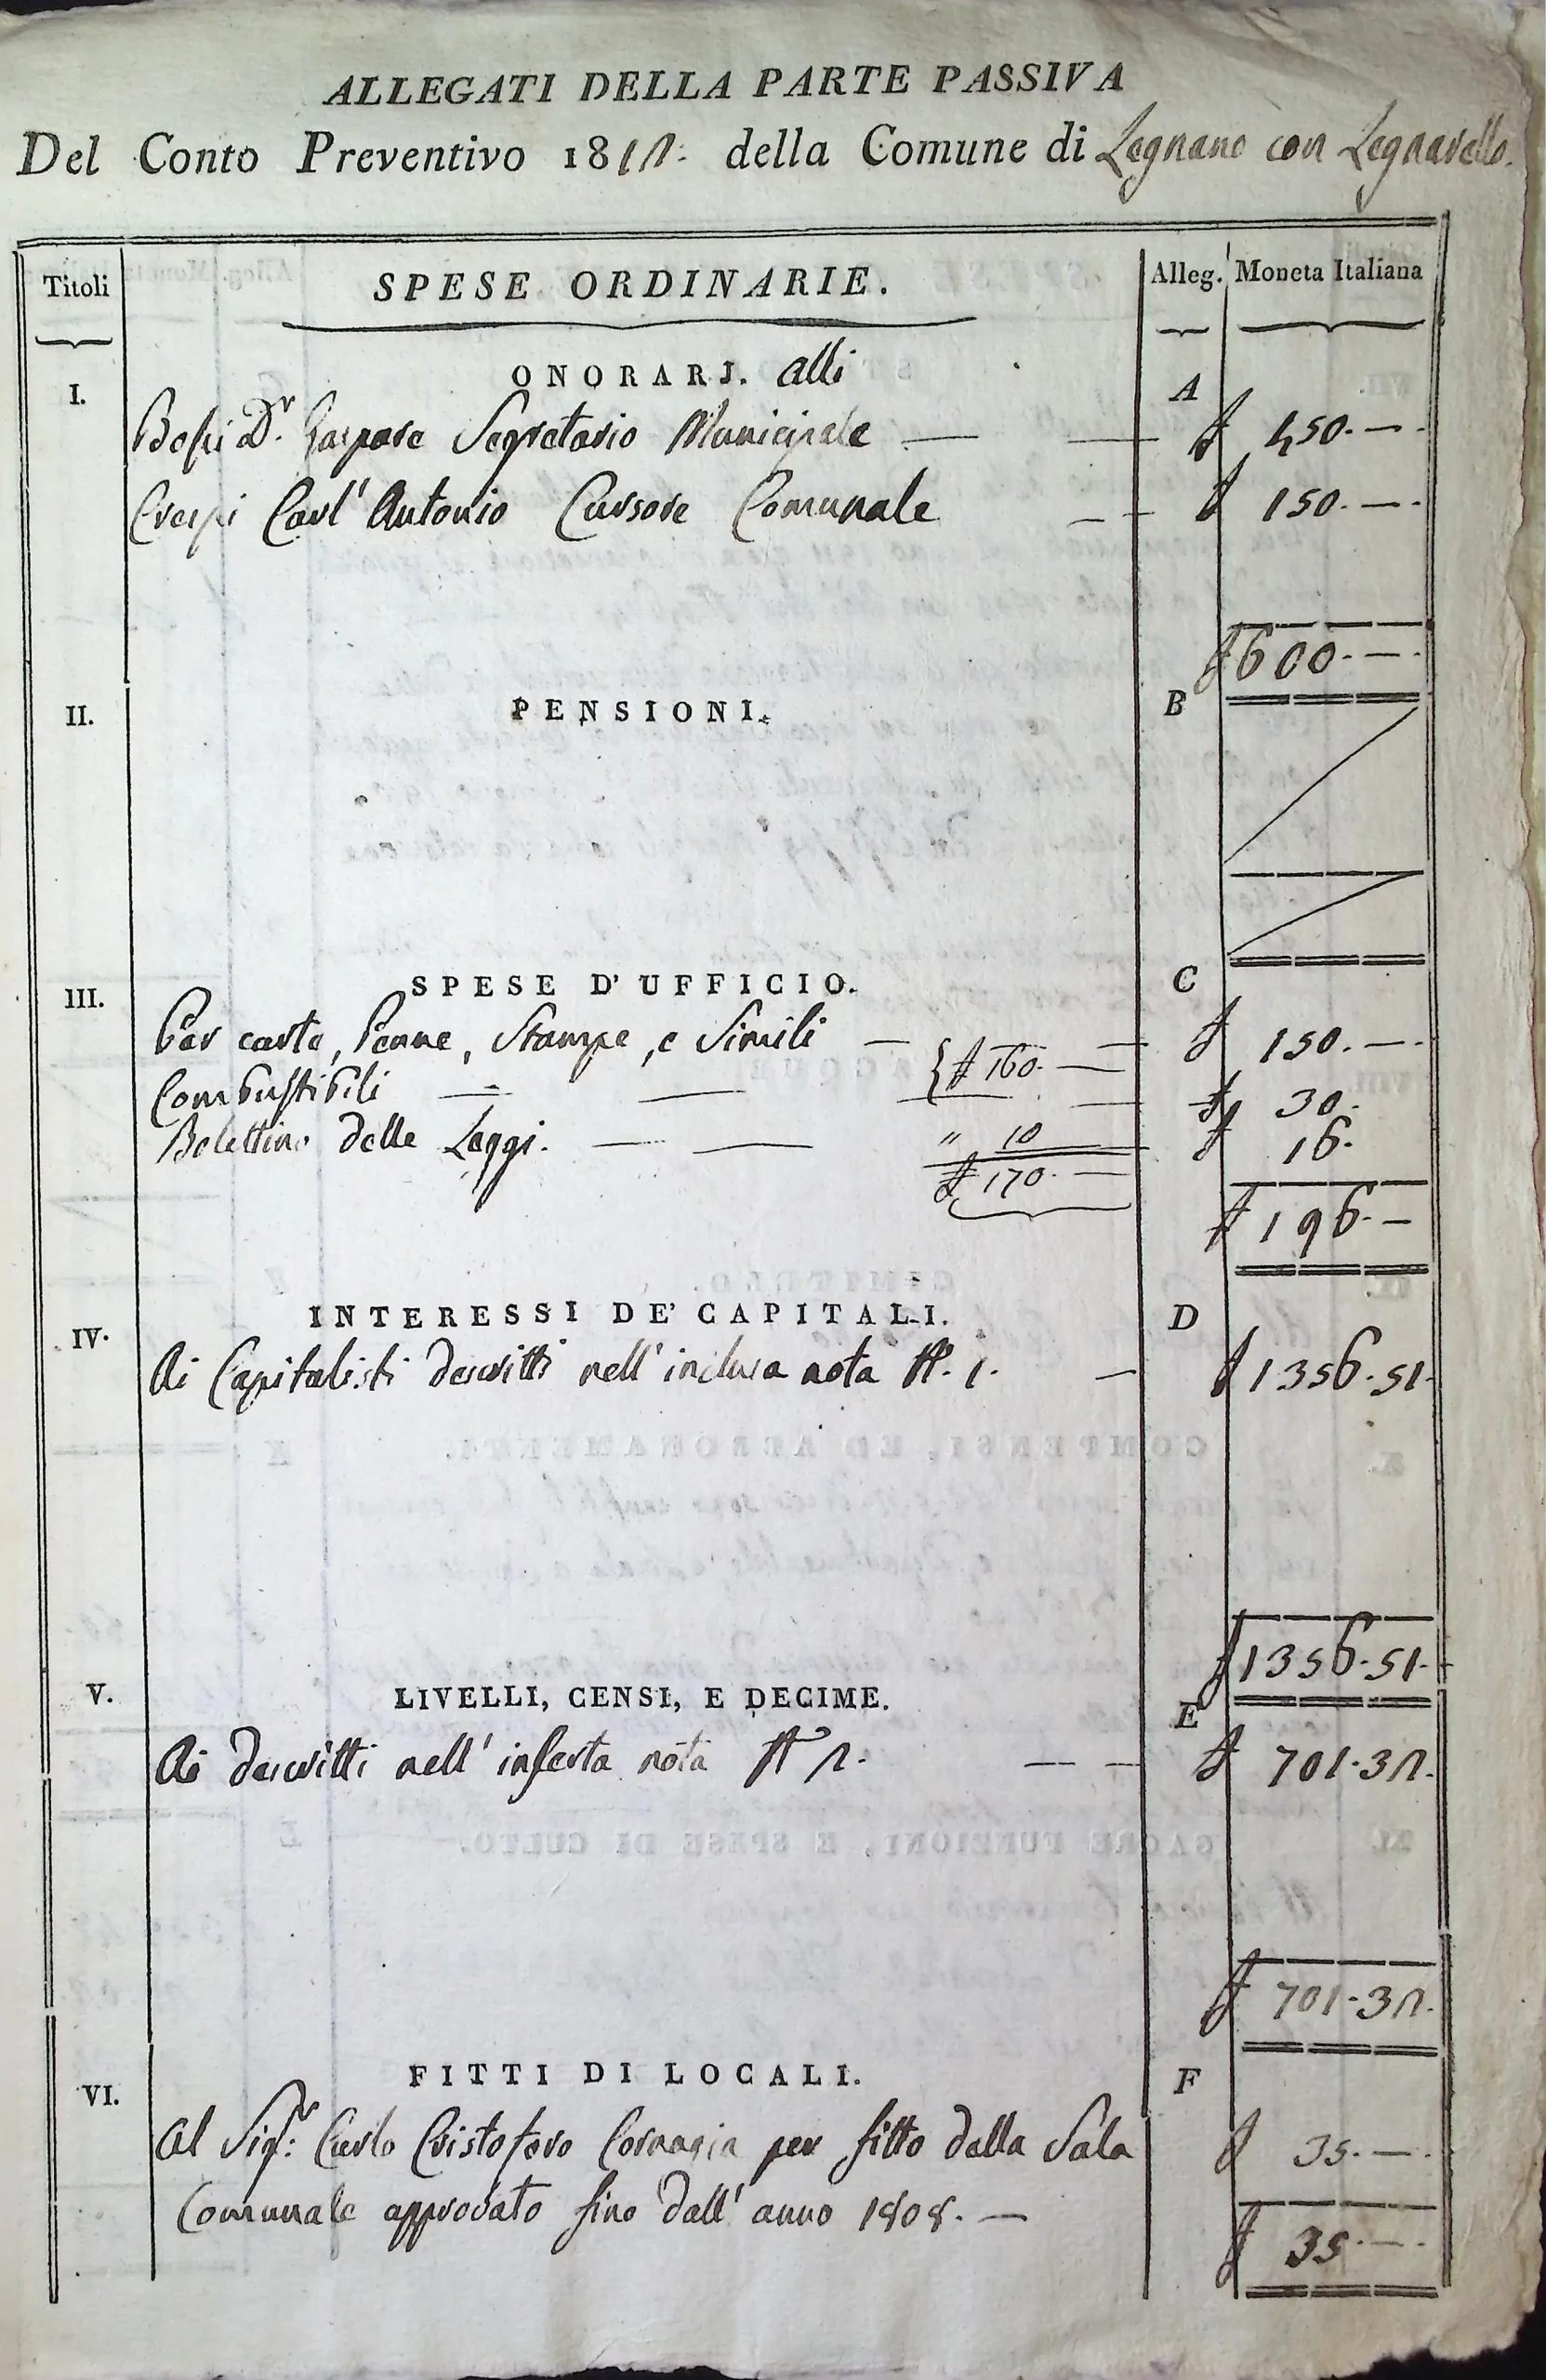 ALLEGATI DELLA PARTE PASSIVA
Del Conto Preventivo 1812. della Comune di Legnano con Legnarello.
Titoli SPESE ORDINARIE. Alleg. Moneta Italiana
I. ONORARJ. alli A
Dr. Gaspare Segretario Municipale — — £ 450. — .
Crespi Carl' Antonio Cursore Comunale — — £ 150. — .
£ 600. — .
II. PENSIONI. B
III. SPESE D'UFFICIO. C
Per carta, Penne, Stampe, e Simili — — £ 150. — .
{ £ 160. —
Combustibili — — — £ 30.
Bolettino delle Leggi. — — " 10 £ 16.
£ 170. —
£ 196. —
IV. INTERESSI DE' CAPITALI. D
Ai Capitalisti descritti nell' inclusa nota N. 1. — £ 1356. 51.
£ 1356. 51.
V. LIVELLI, CENSI, E DECIME. E
Ai descritti nell' inserta nota N 2. — — — £ 701. 32.
£ 701. 32.
VI. FITTI DI LOCALI. F
Al Sigr: Carlo Cristoforo Cornagia per fitto della Sala £ 35. — .
Comunale approvato fino dall' anno 1808. —
£ 35. — .